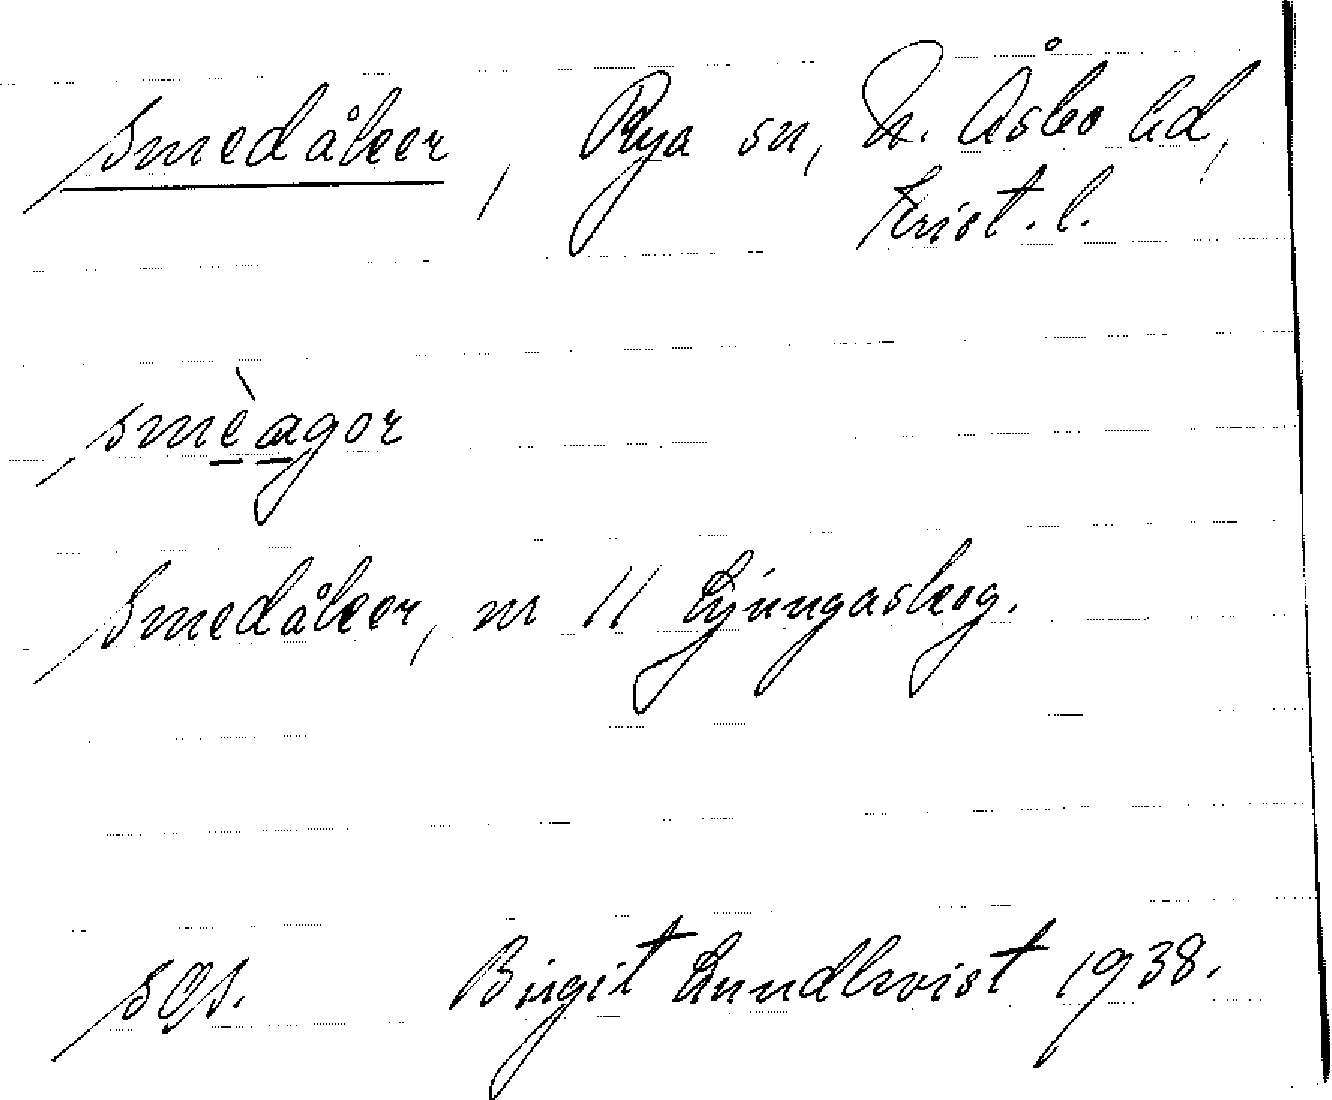 Smedåker, Rya sn, N. Åsbo hd,
Krist. l.
smèagor
Smedåker, nr 11 Ljungaskog.
sgs. Birgit Lundkvist 1938.